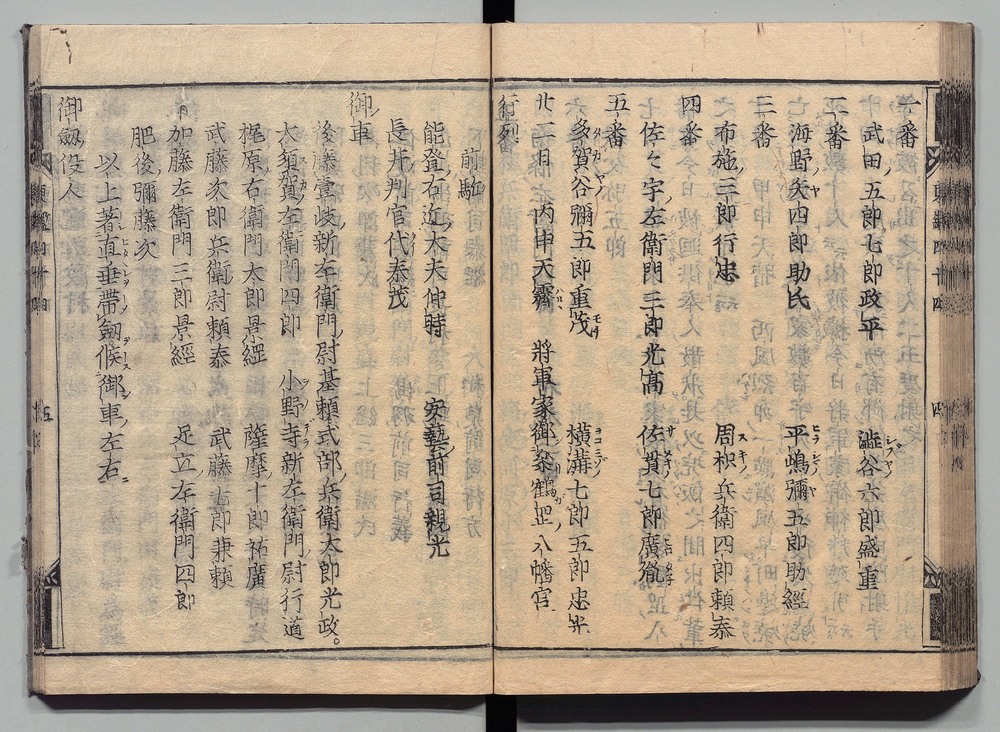 一番
武田五郎七郎政平 澁谷六郎盛重
二番
海野矢四郎助氏 平嶋彌五郎助經
三番
布施三郎行忠 周枳兵衛四郎頼泰
四番
佐々宇左衛門三郎光高 佐貫七郎廣胤
五番
多賀谷彌五郎重茂 横溝七郎五郎忠光
廿二日丙申天霽 將軍家御參鶴岡八幡宮
行列
前駈
能登右近大夫仲時 安藝前司親光
長井判官代泰茂
御車
後藤壹岐新左衛門尉基頼 式部兵衛太郎光政
大須賀左衛門四郎 小野寺新左衛門尉行道
梶原右衛門太郎景綱 薩摩十郎祐廣
武藤次郎兵衛尉頼泰 武藤七郎兼頼
加藤左衛門三郎景經 足立左衛門四郎
肥後彌藤次
以上著直垂帶劔候御車左右
御劔役人